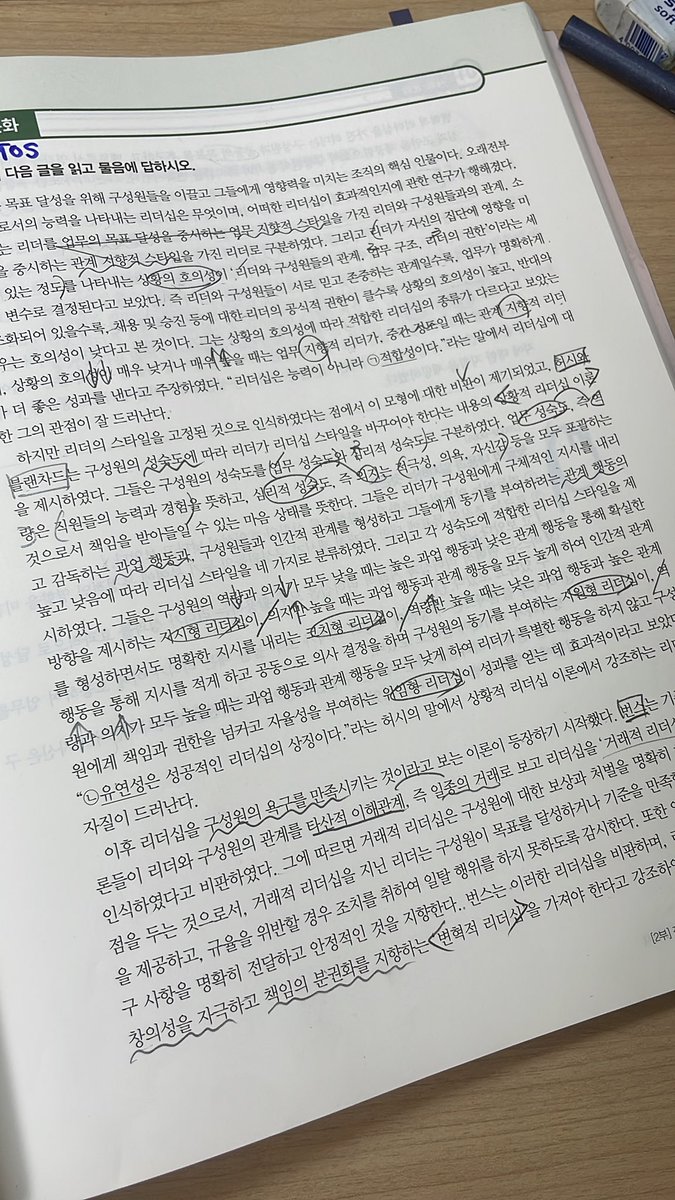 화
TOS
다음 글을 읽고 물음에 답하시오.
목표 달성을 위해 구성원들을 이끌고 그들에게 영향력을 미치는 조직의 핵심 인물이다. 오래전부
로서의 능력을 나타내는 리더십은 무엇이며, 어떠한 리더십이 효과적인지에 관한 연구가 행해졌다.
는 리더를 업무의 목표 달성을 중시하는 업무 지향적 스타일을 가진 리더와 구성원들과의 관계, 소
을 중시하는 관계 지향적 스타일을 가진 리더로 구분하였다. 그리고 리더가 자신의 집단에 영향을 미
있는 정도를 나타내는 상황의 호의성이 '리더와 구성원들의 관계, 업무 구조, 리더의 권한'이라는 세
변수로 결정된다고 보았다. 즉 리더와 구성원들이 서로 믿고 존중하는 관계일수록, 업무가 명확하게
조화되어 있을수록, 채용 및 승진 등에 대한 리더의 공식적 권한이 클수록 상황의 호의성이 높고, 반대의
우는 호의성이 낮다고 본 것이다. 그는 상황의 호의성에 따라 적합한 리더십의 종류가 다르다고 보았는
상황의 호의성이 매우 낮거나 매우 높을 때는 업무 지향적 리더가, 중간 정도일 때는 관계 지향적 리더
가 더 좋은 성과를 낸다고 주장하였다. "리더십은 능력이 아니라 ㉠적합성이다."라는 말에서 리더십에 대
한 그의 관점이 잘 드러난다.
하지만 리더의 스타일을 고정된 것으로 인식하였다는 점에서 이 모형에 대한 비판이 제기되었고, 허시와
블랜차드는 구성원의 성숙도에 따라 리더가 리더십 스타일을 바꾸어야 한다는 내용의 상황적 리더십 이론
을 제시하였다. 그들은 구성원의 성숙도를 업무 성숙도와 심리적 성숙도로 구분하였다. 업무 성숙도, 즉 역
량은 직원들의 능력과 경험을 뜻하고, 심리적 성숙도, 즉 의지는 적극성, 의욕, 자신감 등을 모두 포괄하는
것으로서 책임을 받아들일 수 있는 마음 상태를 뜻한다. 그들은 리더가 구성원에게 구체적인 지시를 내리
고 감독하는 과업 행동과, 구성원들과 인간적 관계를 형성하고 그들에게 동기를 부여하려는 관계 행동의
높고 낮음에 따라 리더십 스타일을 네 가지로 분류하였다. 그리고 각 성숙도에 적합한 리더십 스타일을 제
시하였다. 그들은 구성원의 역량과 의지가 모두 낮을 때는 높은 과업 행동과 낮은 관계 행동을 통해 확실한
방향을 제시하는 지시형 리더십이, 의지만 높을 때는 과업 행동과 관계 행동을 모두 높게 하여 인간적 관계
를 형성하면서도 명확한 지시를 내리는 코치형 리더십이, 역량만 높을 때는 낮은 과업 행동과 높은 관계
행동을 통해 지시를 적게 하고 공동으로 의사 결정을 하며 구성원의 동기를 부여하는 지원형 리더십이, 역
량과 의지가 모두 높을 때는 과업 행동과 관계 행동을 모두 낮게 하여 리더가 특별한 행동을 하지 않고 구성
원에게 책임과 권한을 넘기고 자율성을 부여하는 위임형 리더십이 성과를 얻는 데 효과적이라고 보았다
"㉡유연성은 성공적인 리더십의 상징이다."라는 허시의 말에서 상황적 리더십 이론에서 강조하는 리더
자질이 드러난다.
이후 리더십을 구성원의 욕구를 만족시키는 것이라고 보는 이론이 등장하기 시작했다. 번스는 기존
론들이 리더와 구성원의 관계를 타산적 이해관계, 즉 일종의 거래로 보고 리더십을 '거래적 리더십
인식하였다고 비판하였다. 그에 따르면 거래적 리더십은 구성원에 대한 보상과 처벌을 명확히
점을 두는 것으로서, 거래적 리더십을 지닌 리더는 구성원이 목표를 달성하거나 기준을 만족하
을 제공하고, 규율을 위반할 경우 조치를 취하여 일탈 행위를 하지 못하도록 감시한다. 또한
구 사항을 명확히 전달하고 안정적인 것을 지향한다. 번스는 이러한 리더십을 비판하며,
창의성을 자극하고 책임의 분권화를 지향하는 변혁적 리더십을 가져야 한다고 강조하
[2부]
soft